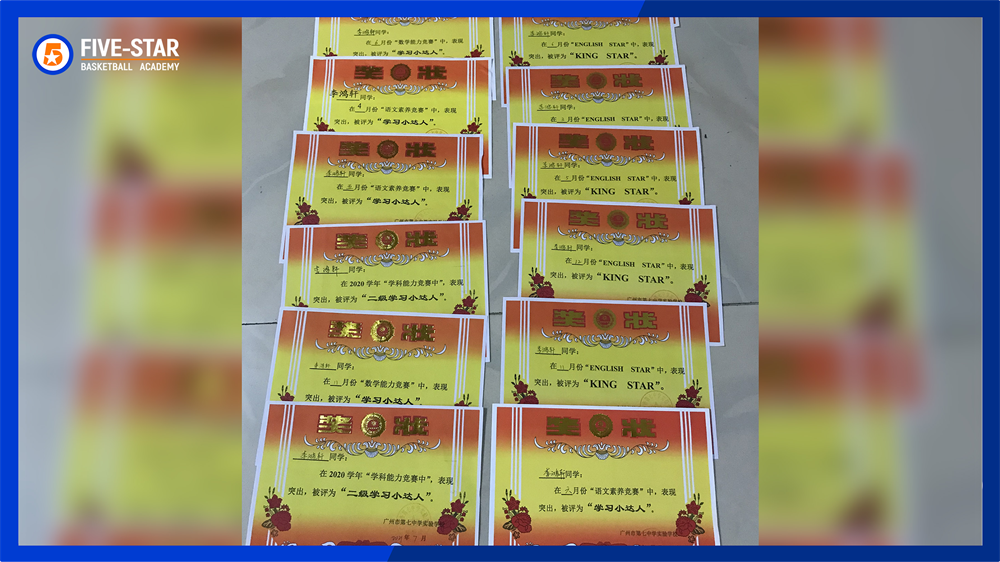 FIVE-STAR
BASKETBALL ACADEMY
李鸿轩同学：
在6月份“数学能力竞赛”中，表现
突出，被评为“学习小达人”
奖状
李鸿轩同学：
在4月份“语文素养竞赛”中，表现
突出，被评为“学习小达人”。
奖状
李鸿轩同学：
在五月份“语文素养竞赛”中，表现
突出，被评为“学习小达人”。
奖状
李鸿轩同学：
在2020学年“学科能力竞赛中”，表现
突出，被评为“二级学习小达人”。
奖状
李鸿轩同学：
在11月份“数学能力竞赛”中，表现
突出，被评为“学习小达人”。
奖状
李鸿轩同学：
在2020学年“学科能力竞赛中”，表现
突出，被评为“二级学习小达人”。
广州市第七中学实验学校
2021年7月
李鸿轩同学：
月份“ENGLISH STAR”中，表现
突出，被评为“KING STAR”。
奖状
李鸿轩同学：
月份“ENGLISH STAR”中，表现
奖状
李鸿轩同学：
月份“ENGLISH STAR”中，表现
突出，被评为“KING STAR”。
奖状
李鸿轩同学：
在12月份“ENGLISH STAR”中，表现
突出，被评为“KING STAR”。
广州市第七中学实验学校
奖状
李鸿轩同学：
在11月份“ENGLISH STAR”中，表现
突出，被评为“KING STAR”。
奖状
李鸿轩同学：
在六月份“语文素养竞赛”中，表现
突出，被评为“学习小达人”。
广州市第七中学实验学校